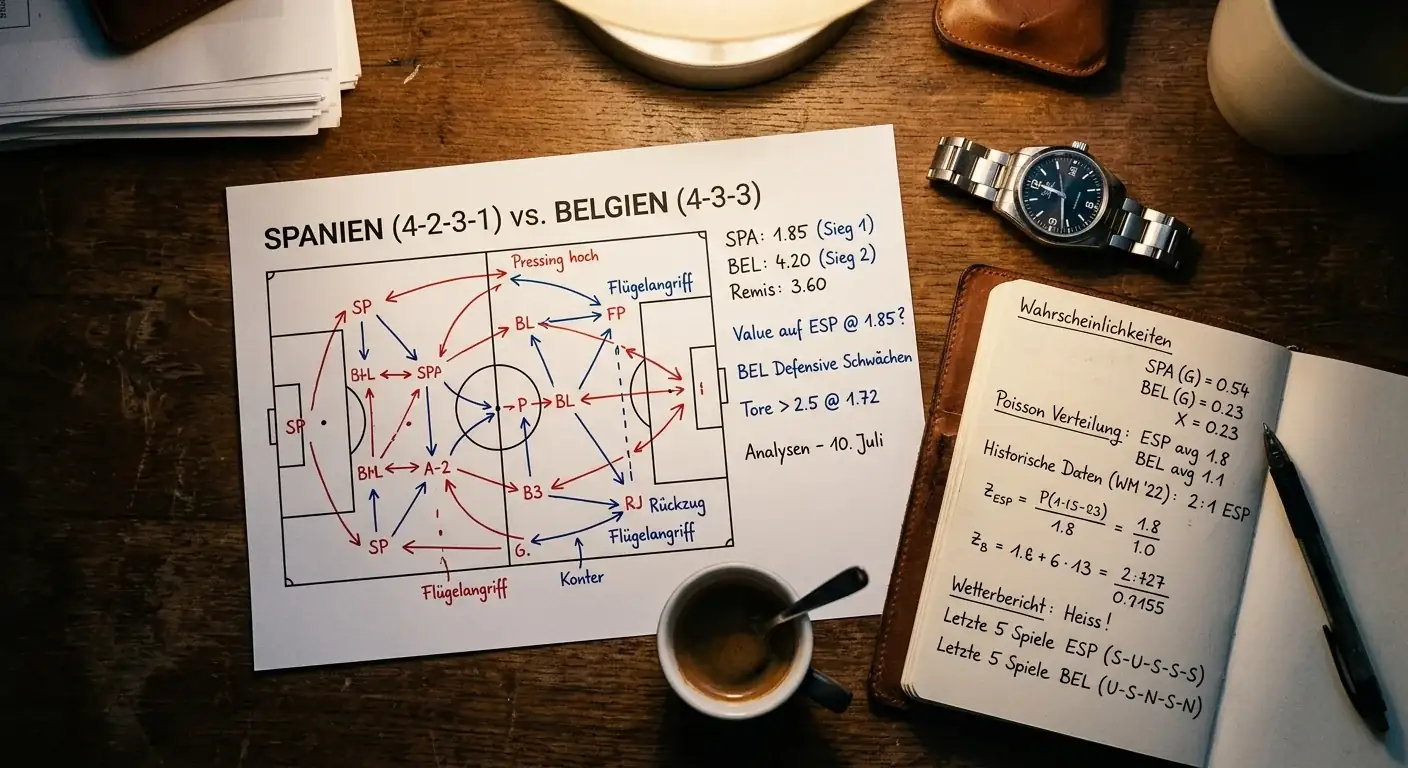 SPANIEN (4-2-3-1) vs. BELGIEN (4-3-3)
Pressing hoch
Flügelangriff
SP
BL
FP
B+L
SPA
SP
P
BL
B+L
A-2
B3
RJ Rückzug
Flügelangriff
SP
G.
Flügelangriff
Konter
SPA: 1.85 (Sieg 1)
BEL: 4.20 (Sieg 2)
Remis: 3.60
Value auf ESP @ 1.85?
BEL Defensive Schwächen
Tore > 2.5 @ 1.72
Analysen – 10. Juli
Wahrscheinlichkeiten
SPA (G) = 0.54
BEL (G) = 0.23
X = 0.23
Poisson Verteilung: ESP avg 1.8
BEL avg 1.1
Historische Daten (WM '22): 2:1 ESP
Z_ESP = P(1-15-23) / 1.8 = 1.8 / 1.0
Z_B = 1.6 + 6 · 13 = 2.727 / 0.7155
Wetterbericht: Heiss!
Letzte 5 Spiele ESP (S-U-S-S-S)
Letzte 5 Spiele BEL (U-S-N-S-N)